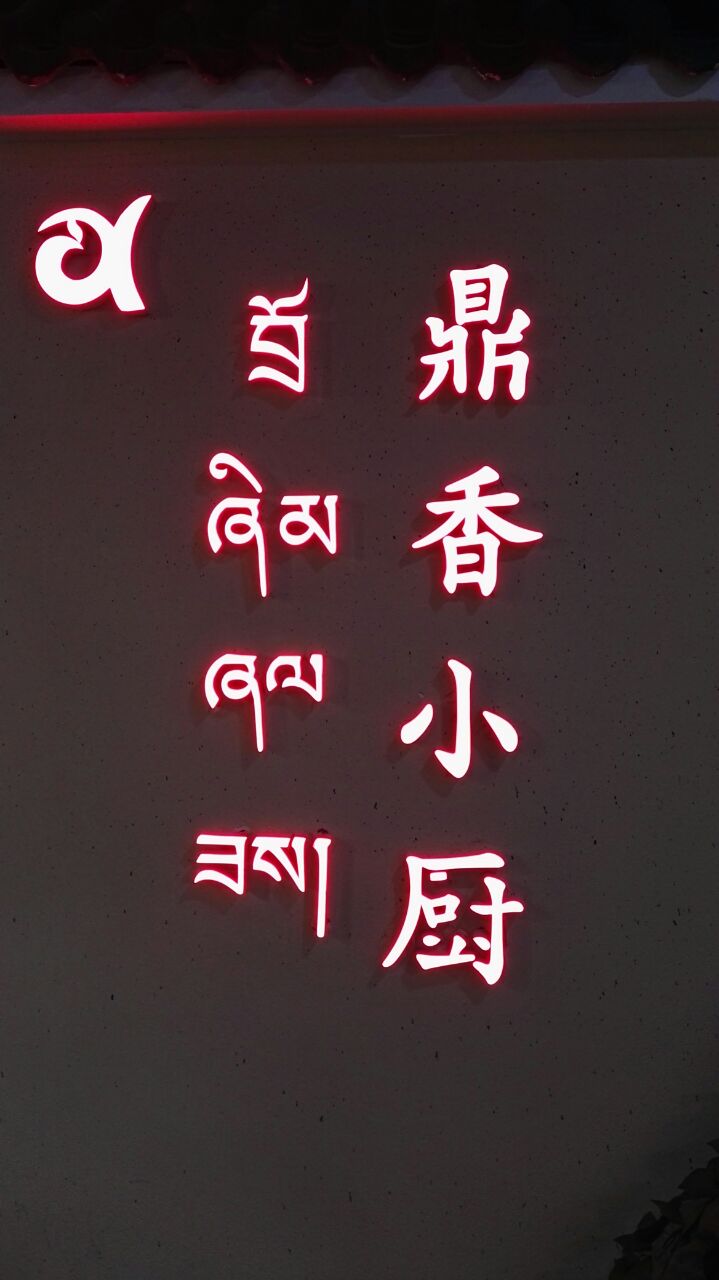 བྲོ
ཞིམ
ཞལ
ཟས།
鼎香小厨